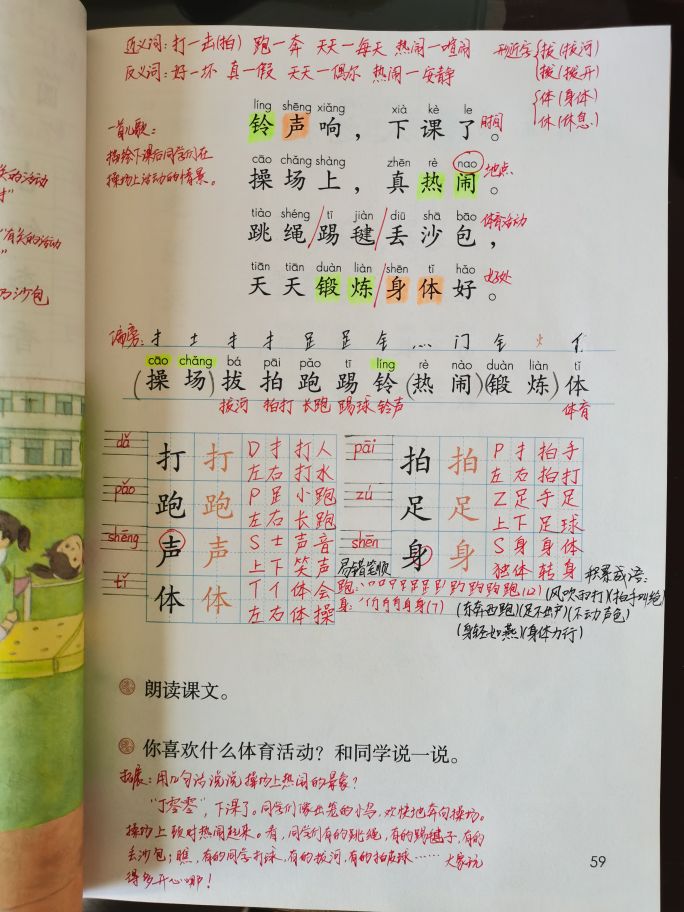 近义词：打—击(拍) 跑—奔 天天—每天 热闹—喧闹
反义词：好—坏 真—假 天天—偶尔 热闹—安静
形近字 拔(拔河)
拨(拨开)
体(身体)
休(休息)
一首儿歌：
描绘下课后同学们在
操场上活动的情景。
líng shēng xiǎng xià kè le
铃声响，下课了。 时间
cāo chǎng shàng zhēn rè nao
操场上，真热闹。 地点
tiào shéng tī jiàn diū shā bāo
跳绳/踢毽/丢沙包， 体育活动
tiān tiān duàn liàn shēn tǐ hǎo
天天锻炼/身体好。 好处
的活动
"有关的活动
沙包
偏旁：扌 土 扌 扌 足 足 钅 灬 门 钅 火 亻
cāo chǎng bá pāi pǎo tī líng rè nào duàn liàn tǐ
(操场)拔拍跑踢铃(热闹)(锻炼)体
拔河 拍打 长跑 踢球 铃声 体育
dǎ 打 打 D 扌 打人
左右 打水
pāi 拍 拍 P 扌 拍手
左右 拍打
pǎo 跑 跑 P 足 小跑
左右 长跑
zú 足 足 Z 足 手足
上下 足球
shēng 声 声 S 士 声音
上下 笑声
shēn 身 身 S 身 身体
独体 转身
tǐ 体 体 T 亻 体会
左右 体操
易错笔顺
跑： 跑(12)
身： 身(7)
积累成语：
(风吹雨打)(拍手叫绝)
(东奔西跑)(足不出户)(不动声色)
(身轻如燕)(身体力行)
朗读课文。
你喜欢什么体育活动？和同学说一说。
拓展：用几句话说说操场上热闹的景象？
"丁零零"，下课了。同学们像出笼的小鸟，欢快地奔向操场。
操场上顿时热闹起来。看，同学们有的跳绳，有的踢毽子，有的
丢沙包；瞧，有的同学打球，有的拔河，有的拍皮球……大家玩
得多开心哪！
59